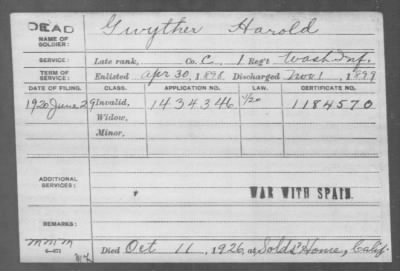 DEAD
NAME OF SOLDIER: Gwyther Harold
SERVICE: Late rank, Co. C, 1 Reg't Wash. Inf.
TERM OF SERVICE: Enlisted Apr 30, 1898, Discharged Nov. 1, 1899
DATE OF FILING. CLASS. APPLICATION NO. LAW. CERTIFICATE NO.
1920 June 29 Invalid, 1434346 1184570
Widow,
Minor,
ADDITIONAL SERVICES:
WAR WITH SPAIN.
REMARKS:
Died Oct 11, 1926, at Solds' Home, Calif.